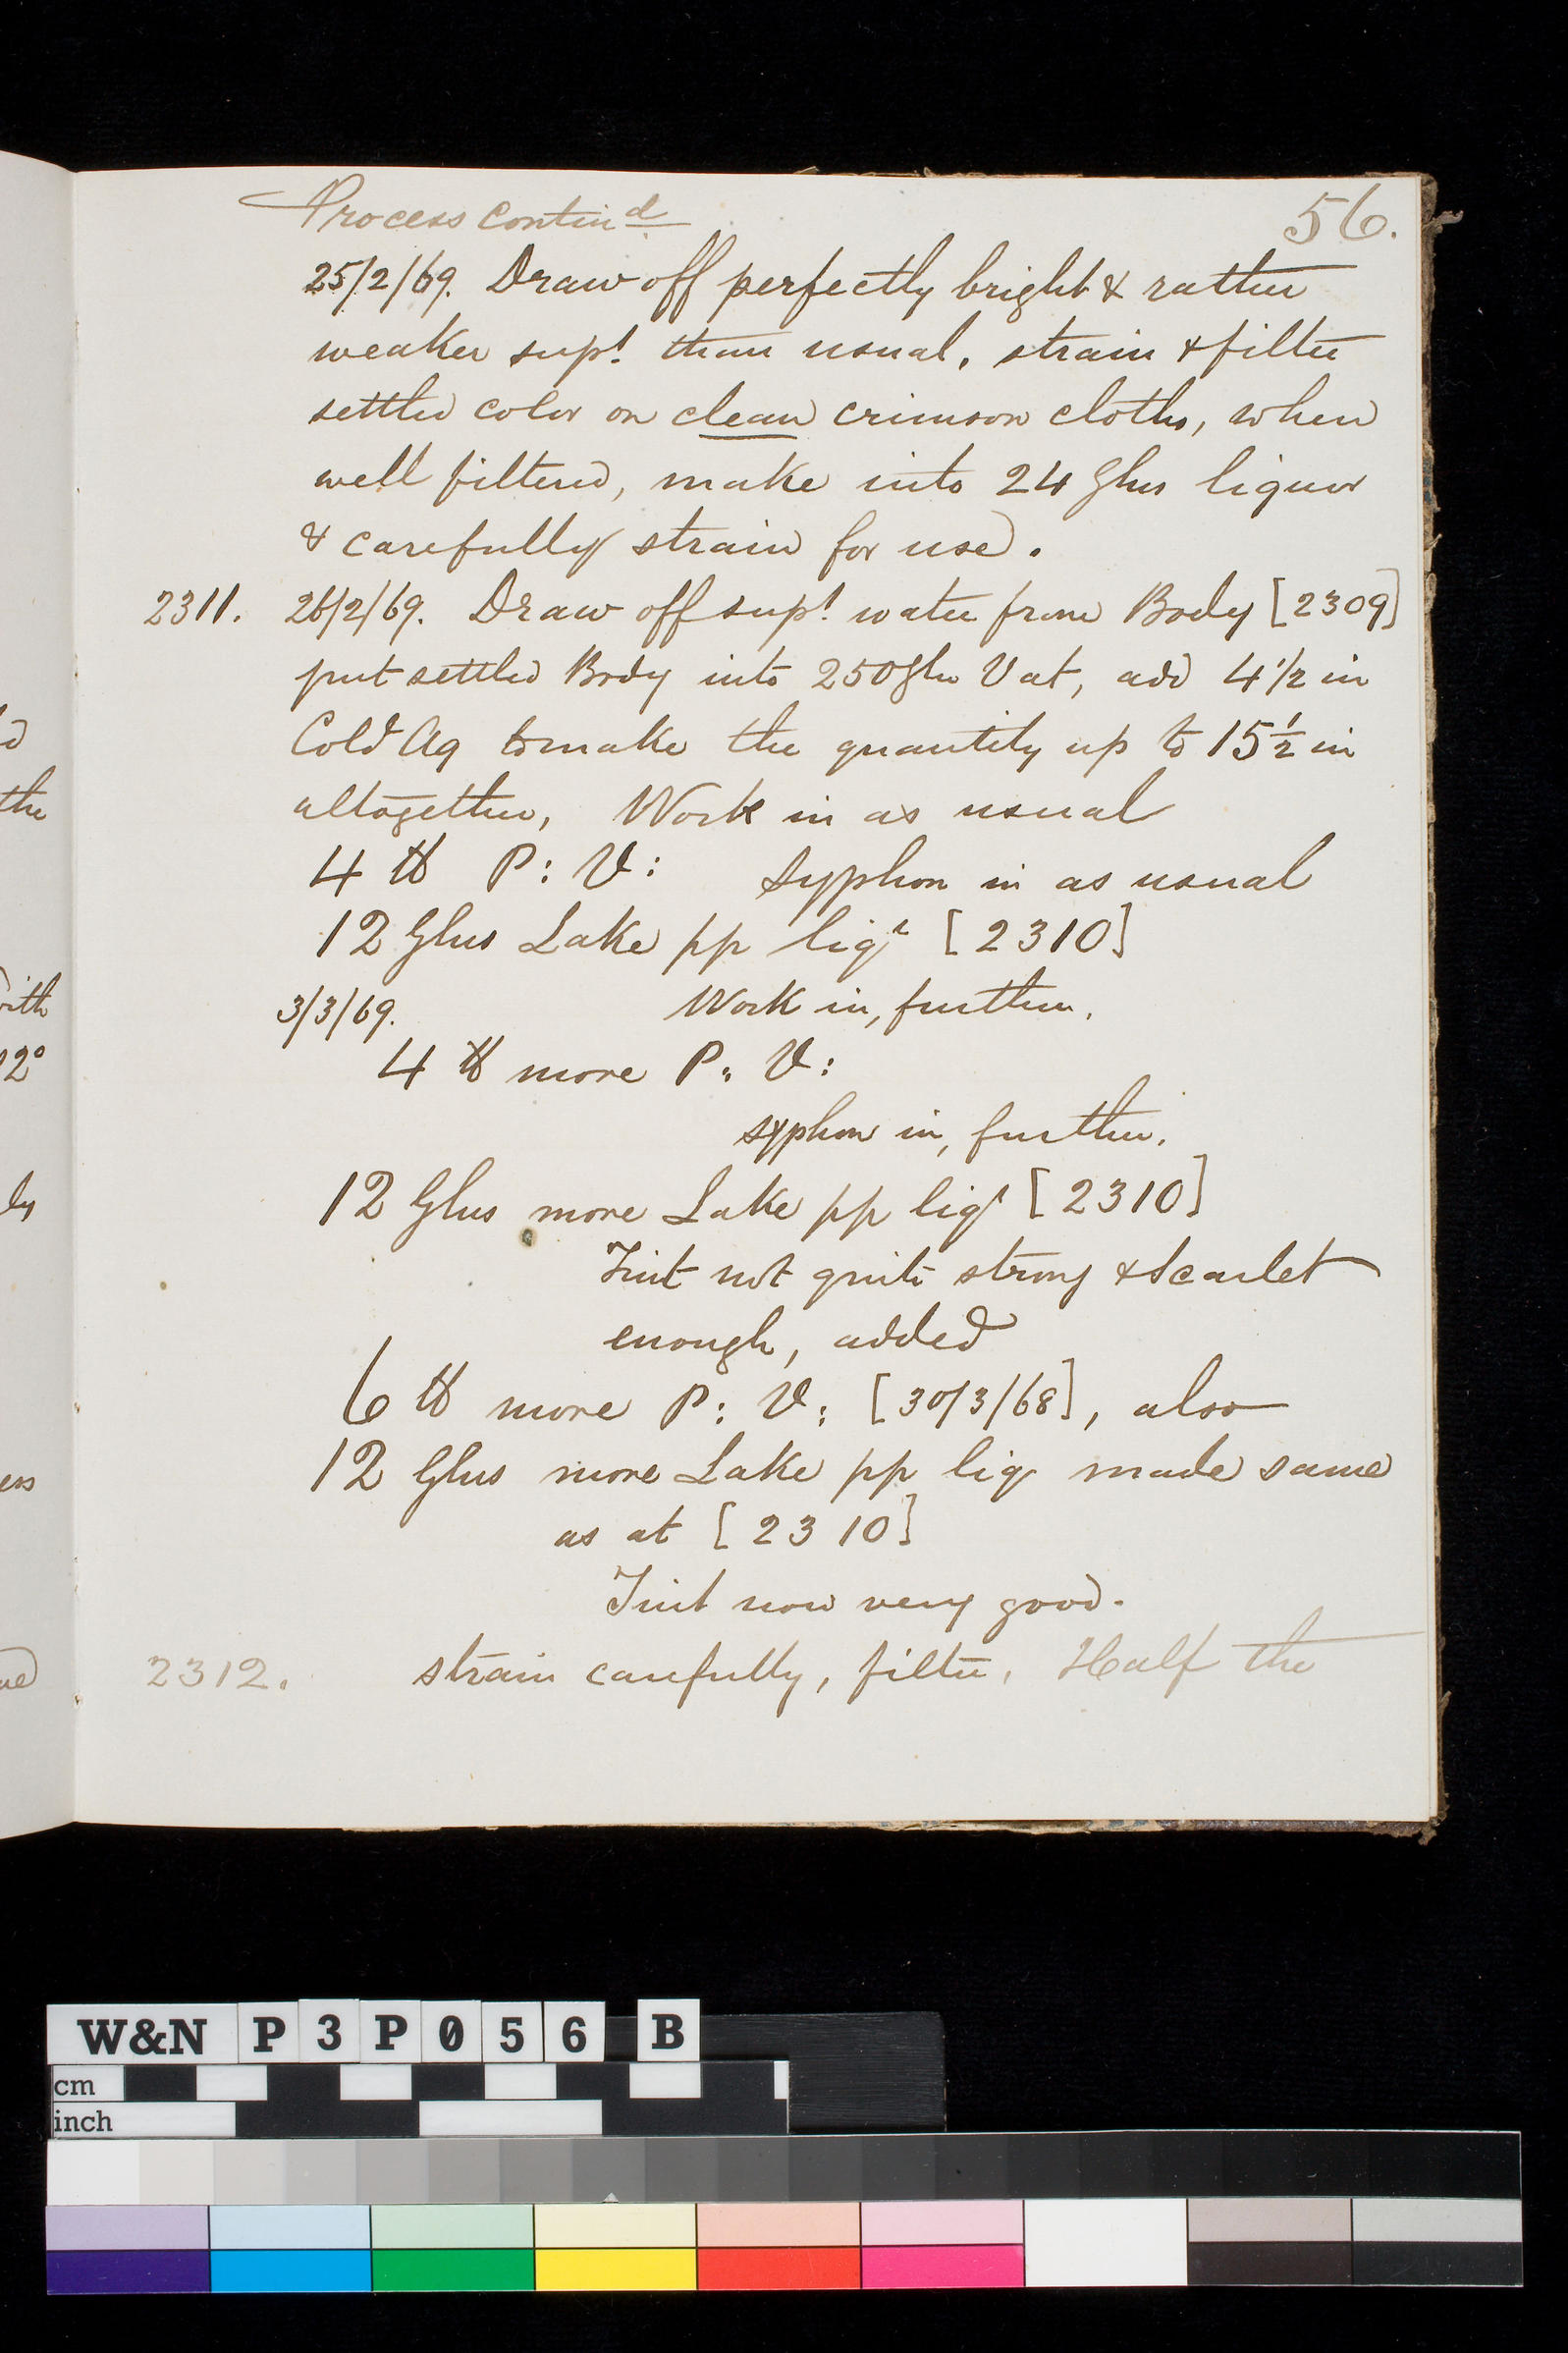 Process Contin^d 56.
25/2/69. Draw off perfectly bright & rather
weaker sup^t than usual, strain & filter
settled color on clean crimson cloths, when
well filtered, make into 24 Glns liquor
& carefully strain for use.
2311. 26/2/69. Draw off sup^t water from Body [2309]
put settled Body into 250 Gln Vat, add 4 1/2 in
Cold Aq to make the quantity up to 15 1/2 in
altogether, Work in as usual
4 ℔ P: V: Syphon in as usual
12 Glns Lake pp liq^r [2310]
3/3/69. Work in, further.
4 ℔ more P: V:
syphon in, further.
12 Glns more Lake pp liq^r [2310]
Tint not quite strong & Scarlet
enough, added
6 ℔ more P: V: [30/3/68], also
12 Glns more Lake pp liq made same
as at [2310]
Tint now very good.
2312. strain carefully, filter, Half the
the
12°
W&N P3P056 B
cm
inch